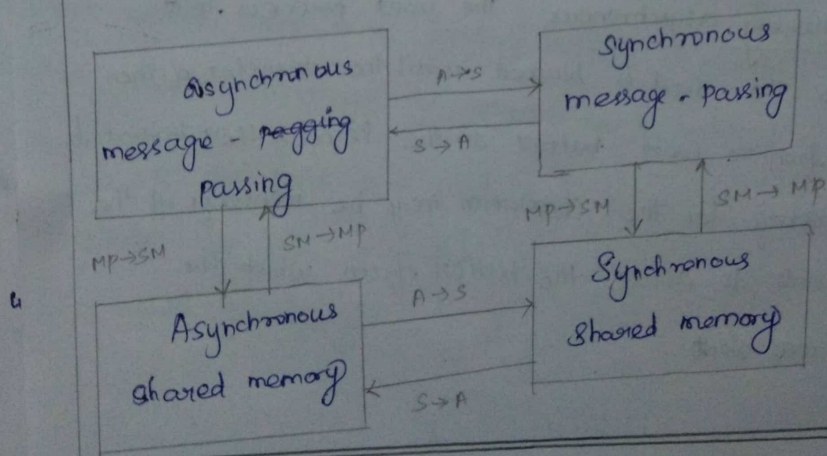 Asynchronous
message - pagging
passing
A→S
S→A
Synchronous
message - passing
MP→SM
SM→MP
MP→SM
SM→MP
Asynchronous
shared memory
A→S
S→A
Synchronous
shared memory